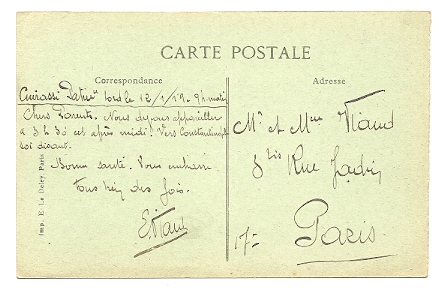 CARTE POSTALE
Correspondance
Cuirassé Patrie bord le 12/1/19. 9h matin
Chers Parents. Nous devons appareiller
à 3 h 30 cet après midi. Vers Constantinople
soi disant.
Bonne santé. Vous embrasse
tous bien des fois.
E. Viaud
Adresse
Mr et Mme Viaud
8 bis Rue Jadin
17e
Paris
Imp. E. Le Deley, Paris